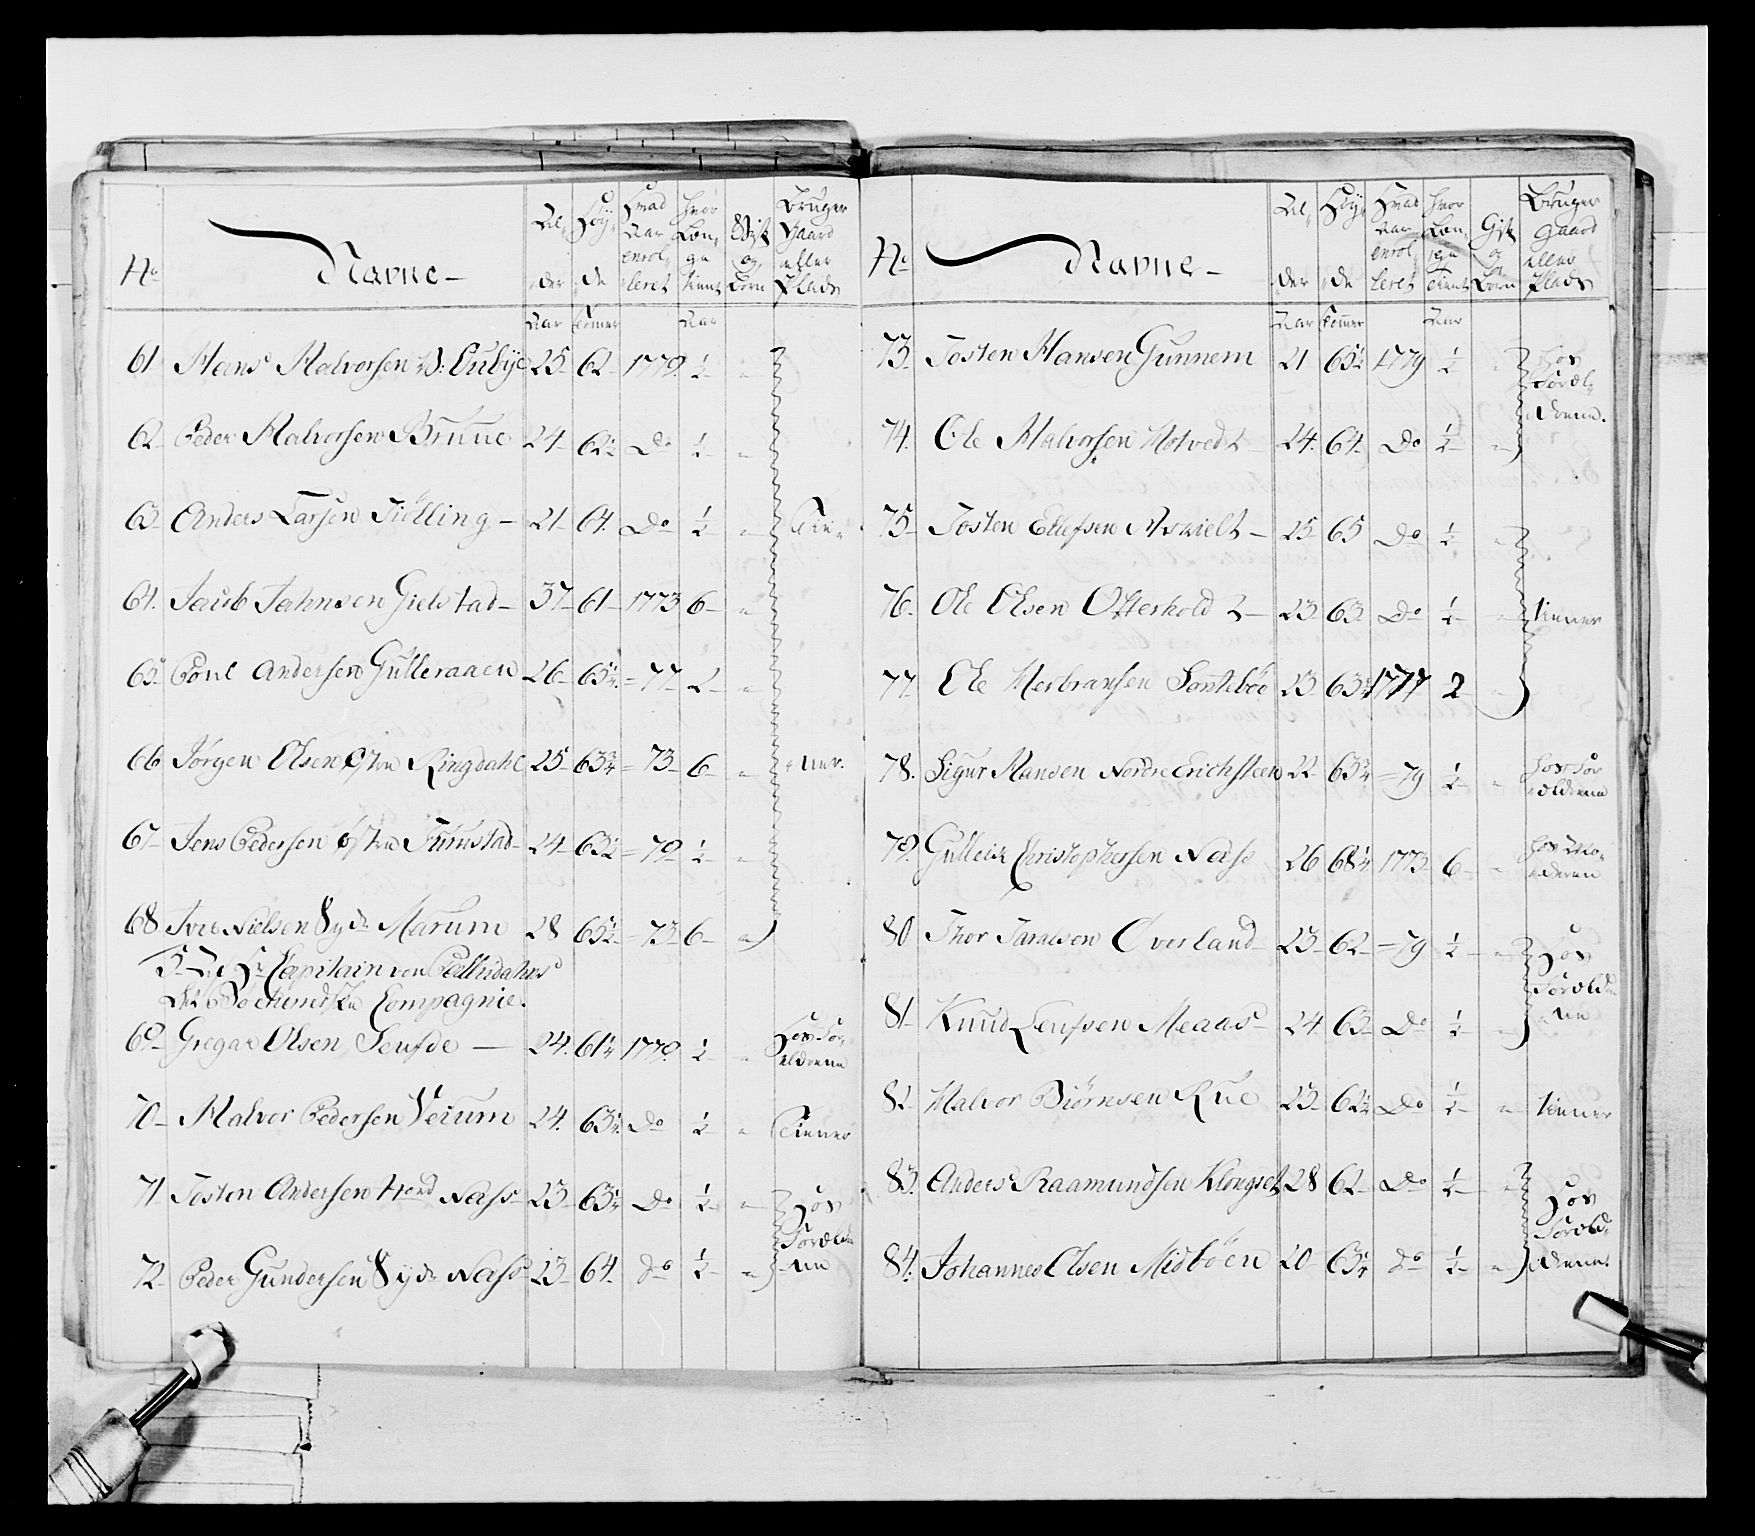 No
Navne
Al„
„der
Høy„
„de
Hvad
Aar
enrol„
leret
Hvor
Læn„
ge
tient
Gift
og
Børn
Bruger
Gaard
eller
Plads
Aar Tomer Aar
61 Hans Halvorsen 25 62 1779 ½ „
62 Peder Halvorsen Bruue 24 62½ Do ½ „
63 Anders Larsen Tiölling 21 64 Do ½ „ Tie„
64 Jacob Jahnsen Gielstad 37 61 1773 6 „
65 Poul Andersen Gulleraaen 26 65¼ = 77 2 „
66 Jørgen Olsen Østre Ringdahl 25 63¾ = 73 6 „ „ner.
67 Jens Pedersen Østre Furustad 24 63½ = 79 ½ „
68 Iver Nielsen Syde Marum 28 65½ = 73 6 „
Capitain von
Compagnie.
69 Gregar Olsen Seufde 24 61¼ 1779 ½ „ Hos For„
ældrene
70 Halvor Pedersen Veium 24 63¼ Do ½ „ Tiener
71 Tosten Andersen Nord Næss 23 63¼ Do ½ „ Hos
Foræld„
72 Peder Gundersen Syde Næss 23 64 Do ½ „ „ne
No
Navne
Al„
„der
Høy„
„de
Hvad
Aar
enrol„
leret
Hvor
Læn„
ge
tient
Gift
og
Børn
Bruger
Gaard
eller
Plads
Aar Tomer Aar
73 Tosten Hansen Gunnem 21 65½ 1779 ½ „ Hos
Foræl„
„drene.
74 Ole Halvorsen Hotvedt 24 64 Do ½ „
75 Tosten Ellefsen Aswielt 25 65 Do ½ „
76 Ole Olsen Otterholdt 23 63 Do ½ „ tiener
77 Ole Herbransen Sontebøe 23 63½ 1777 2 „
78 Sigur Hansen Nordre Erichsteen 22 63¾ = 79 ½ „ Hos For
„ældrene
79 Gulleik Christophersen Næss 26 68¼ 1773 6 „ Hos Mo„
„deren
80 Thor Taralsen Överland 23 62 = 79 ½ „ Hos
Foræld„
ne
81 Knud Leufsen Meaas 24 63 Do ½ „
82 Halvor Biörnsen Rue 23 62½ Do ½ „ tiener
83 Anders Raamundsen Klovset 28 62 Do ½ „ Hos
Foræld„
84 Johannes Olsen Midböen 20 63¼ Do ½ „ drene